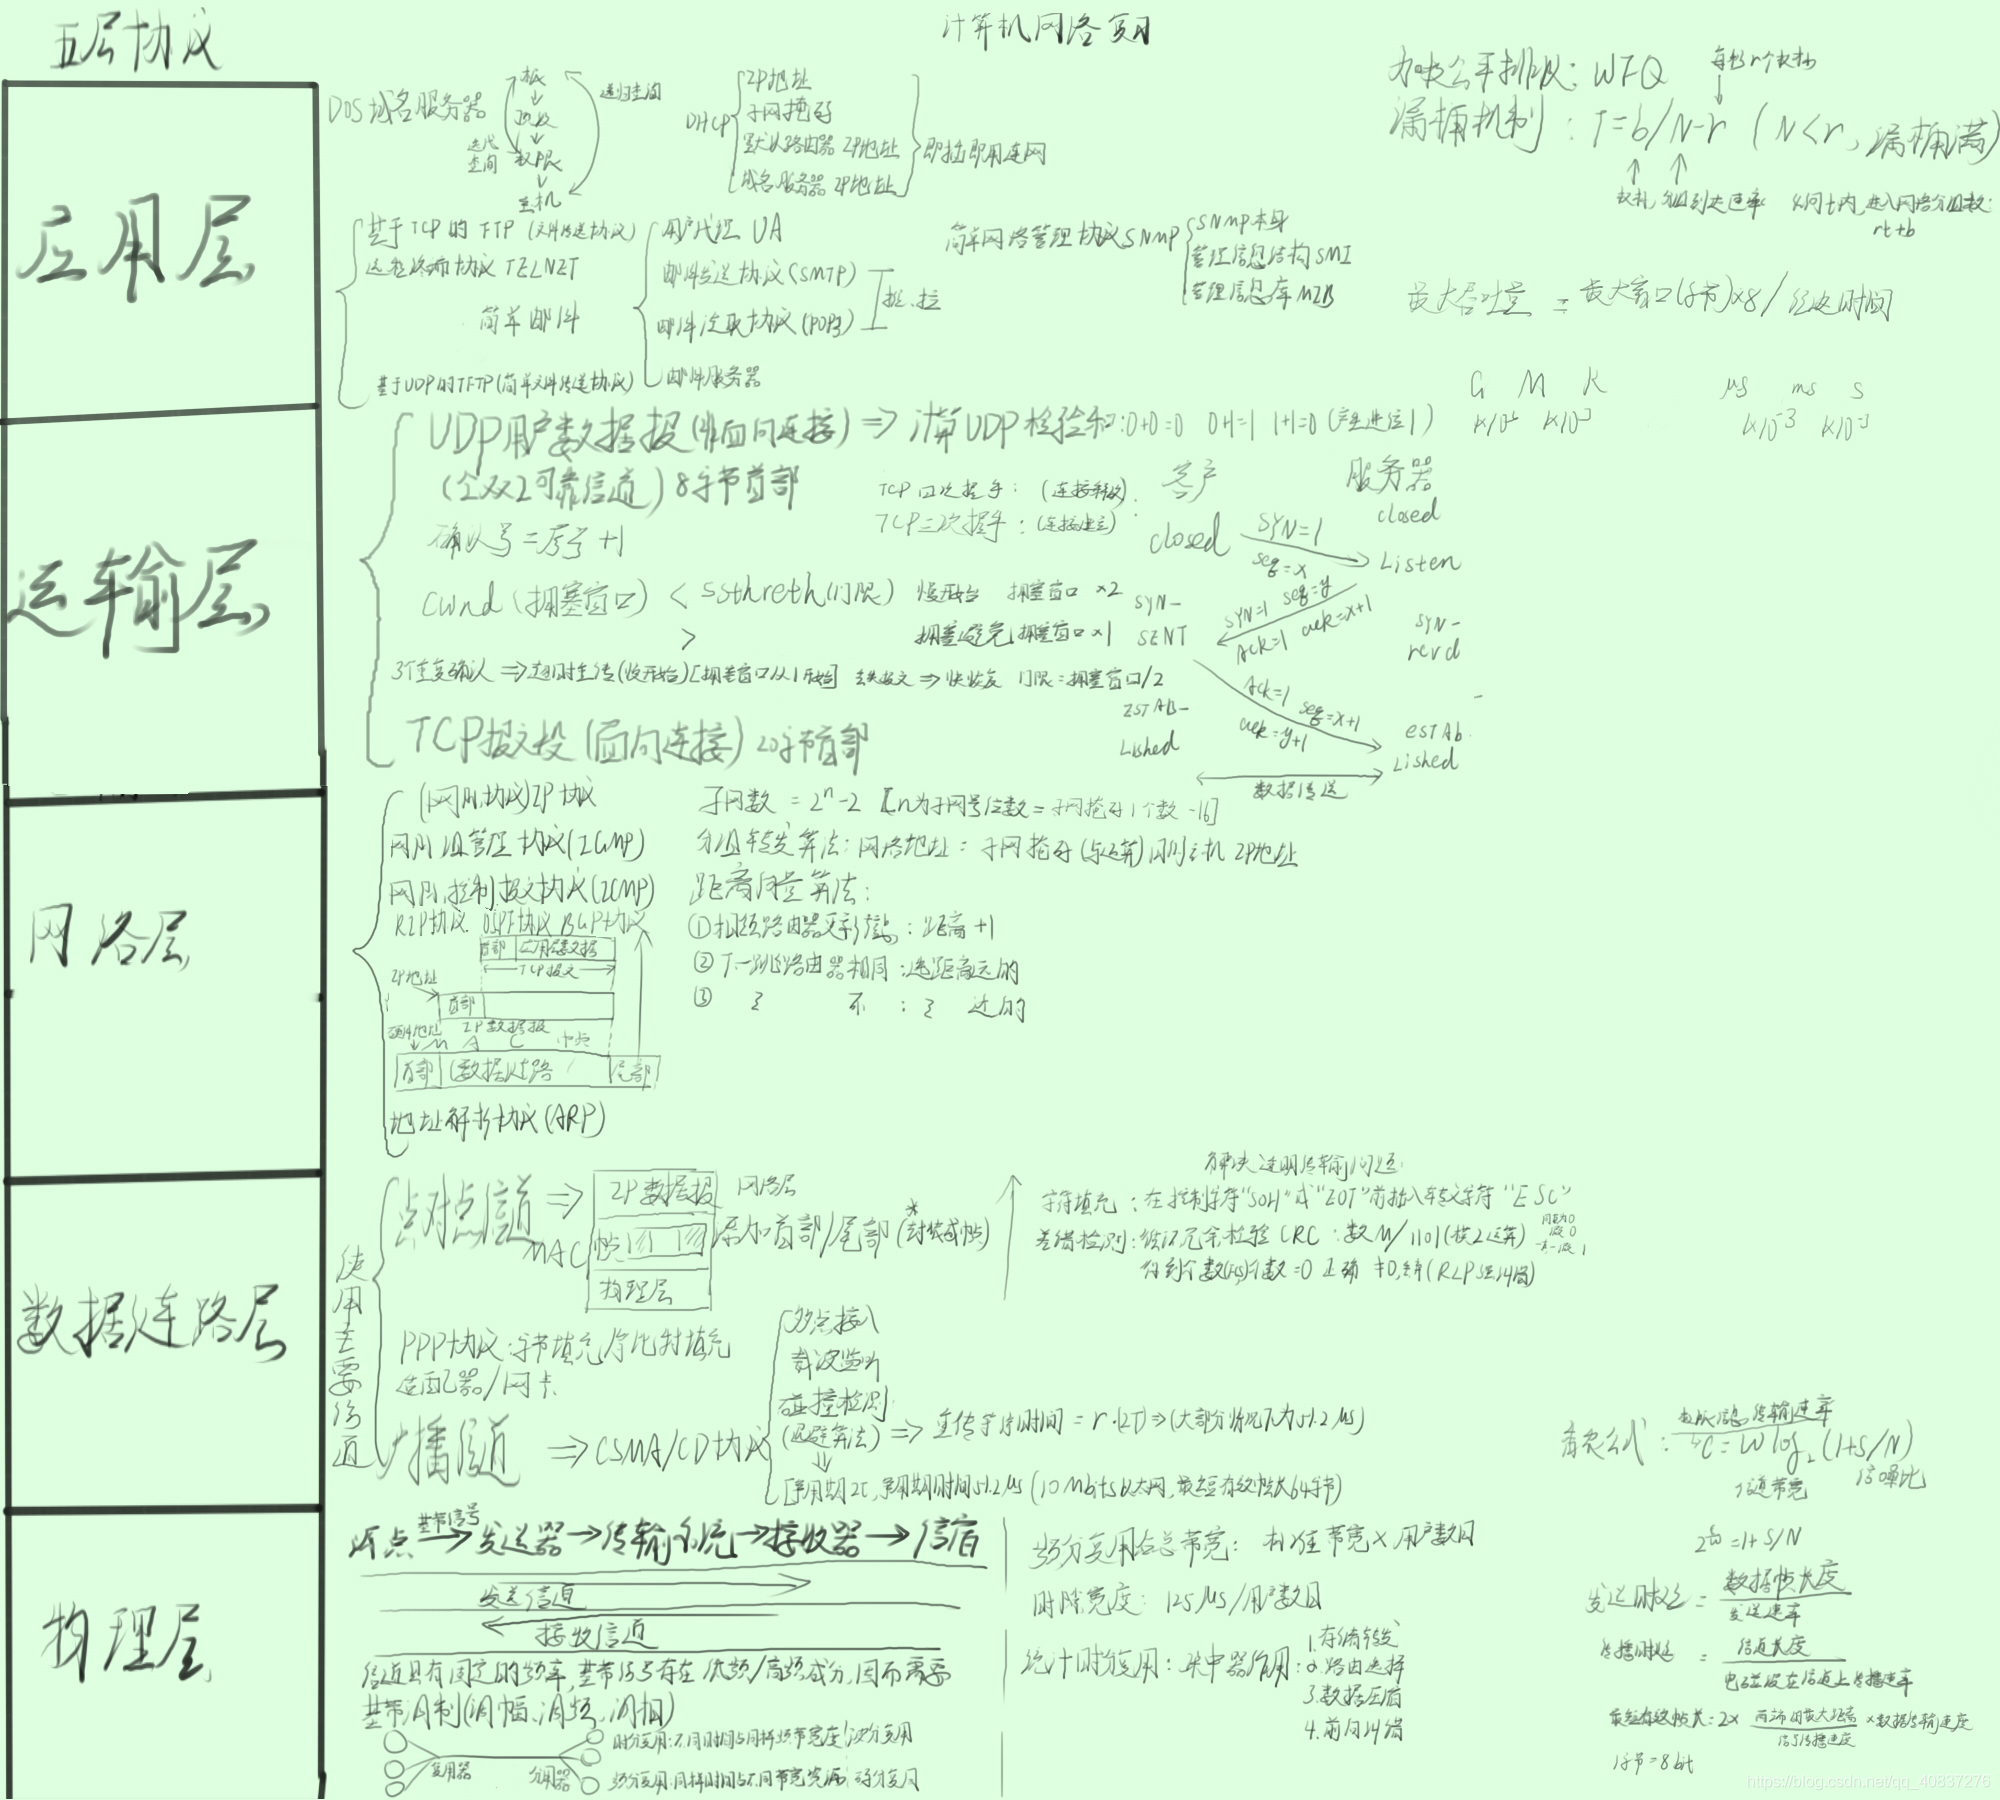 计算机网络复习
五层协议
应用层
DOS域名服务器
根
顶级
权限
主机
迭代
查询
递归查询
DHCP
IP地址
子网掩码
默认路由器 IP地址
域名服务器 IP地址
即插即用连网
基于TCP的 FTP (文件传送协议)
远程终端协议 TELNET
简单邮件
基于UDP的TFTP(简单文件传送协议)
用户代理 UA
邮件发送协议(SMTP)
邮件读取协议(POP3)
邮件服务器
推、拉
简单网络管理协议SNMP
SNMP本身
管理信息结构SMI
管理信息库MIB
加权公平排队: WFQ
漏桶机制: T=b/N-r (N<r, 漏桶满)
权标, 分组到达速率
时间t内, 进入网络分组数:
rt+b
最大吞吐量 = 最大窗口(字节)×8/往返时间
G M K
μs ms s
运输层
UDP用户数据报(非面向连接) ⇒ 计算UDP检验和:0+0=0 0+1=1 1+1=0 (产生进位1)
(全双工可靠信道) 8字节首部
确认号=序号+1
cwnd (拥塞窗口) < ssthreth(门限) 慢开始 拥塞窗口 ×2
> 拥塞避免 拥塞窗口 ×1
3个重复确认 ⇒ 超时重传(慢开始)[拥塞窗口从1开始] 丢失报文 ⇒ 快恢复 门限=拥塞窗口/2
TCP报文段 (面向连接) 20字节首部
TCP四次握手: (连接释放)
TCP三次握手: (连接建立)
客户
服务器
closed
closed
SYN=1
seq=x
Listen
SYN-
SENT
SYN=1 seq=y
ACK=1 ack=x+1
SYN-
revd
ACK=1 seq=x+1
ack=y+1
ESTAB-
Lished
estAb
Lished
数据传送
网络层
(网际协议)IP协议
网际组管理协议(IGMP)
网际控制报文协议(ICMP)
RIP协议 OSPF协议 BGP协议
首部 应用层数据
TCP报文
IP地址
首部
IP数据报
硬件地址
M A C
首部 数据链路 尾部
地址解析协议(ARP)
子网数 = 2ⁿ-2 [n为子网号位数=子网掩码1个数-16]
分组转发算法: 网络地址 = 子网掩码(与运算)网络主机 IP地址
距离向量算法:
①相邻路由器 : 距离+1
②下一跳路由器相同:选距离远的
③ 不 : 近的
数据连路层
使用主要信道
点对点信道 ⇒
MAC
IP数据报
网络层
帧
物理层
添加首部/尾部 (封装成帧)
解决透明传输问题
字符填充:在控制字符"SOH"或"EOT"前插入转义字符"ESC"
差错检测:循环冗余检验 CRC : 数M/1101(模2运算)
得到个数(FCS)个数=0 正确 ≠0,丢弃
PPP协议:字节填充/零比特填充
适配器/网卡
广播信道 ⇒ CSMA/CD协议
多点接入
载波监听
碰撞检测
(退避算法) ⇒ 重传等待时间 = r·(2T)⇒(大部分情况下为51.2μs)
争用期2T, 争用期时间51.2μs (10Mbit/s以太网, 最短有效帧长64字节)
香农公式:
C=Wlog₂(1+S/N)
信道带宽
信噪比
物理层
源点 基带信号→ 发送器→传输系统→接收器→信宿
发送信道
接收信道
信道具有固定的频率,基带信号存在低频/高频成分,因而需要
基带调制(调幅、调频、调相)
复用器
分用器
时分复用:不同时间占同样频带宽度 波分复用
频分复用:同样时间占不同带宽资源 码分复用
频分复用合总带宽: 标准带宽×用户数目
时隙宽度: 125μs/用户数目
统计时分复用: 集中器作用:
1.存储转发
2.路由选择
3.数据压缩
4.前向纠错
发送时延 = 数据帧长度/发送速率
传播时延 = 信道长度/电磁波在信道上传播速率
最短有效帧长=2× 两站间最大距离/信号传播速度 ×数据传输速度
1字节=8bit
https://blog.csdn.net/qq_40837276